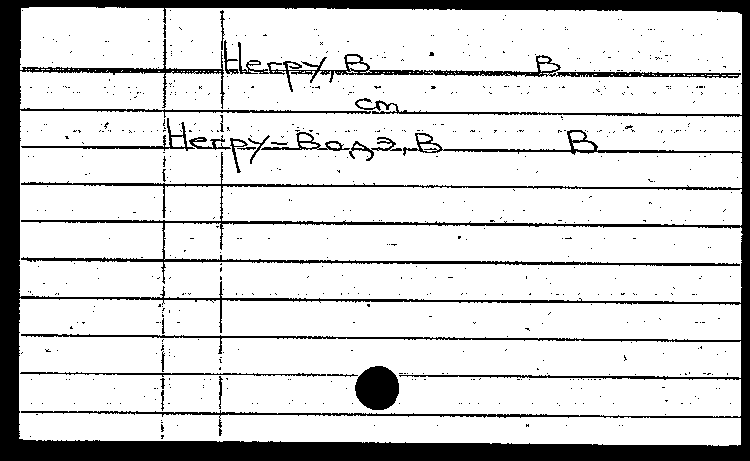 Негру, В В
cm.
Негру-Водэ, В В